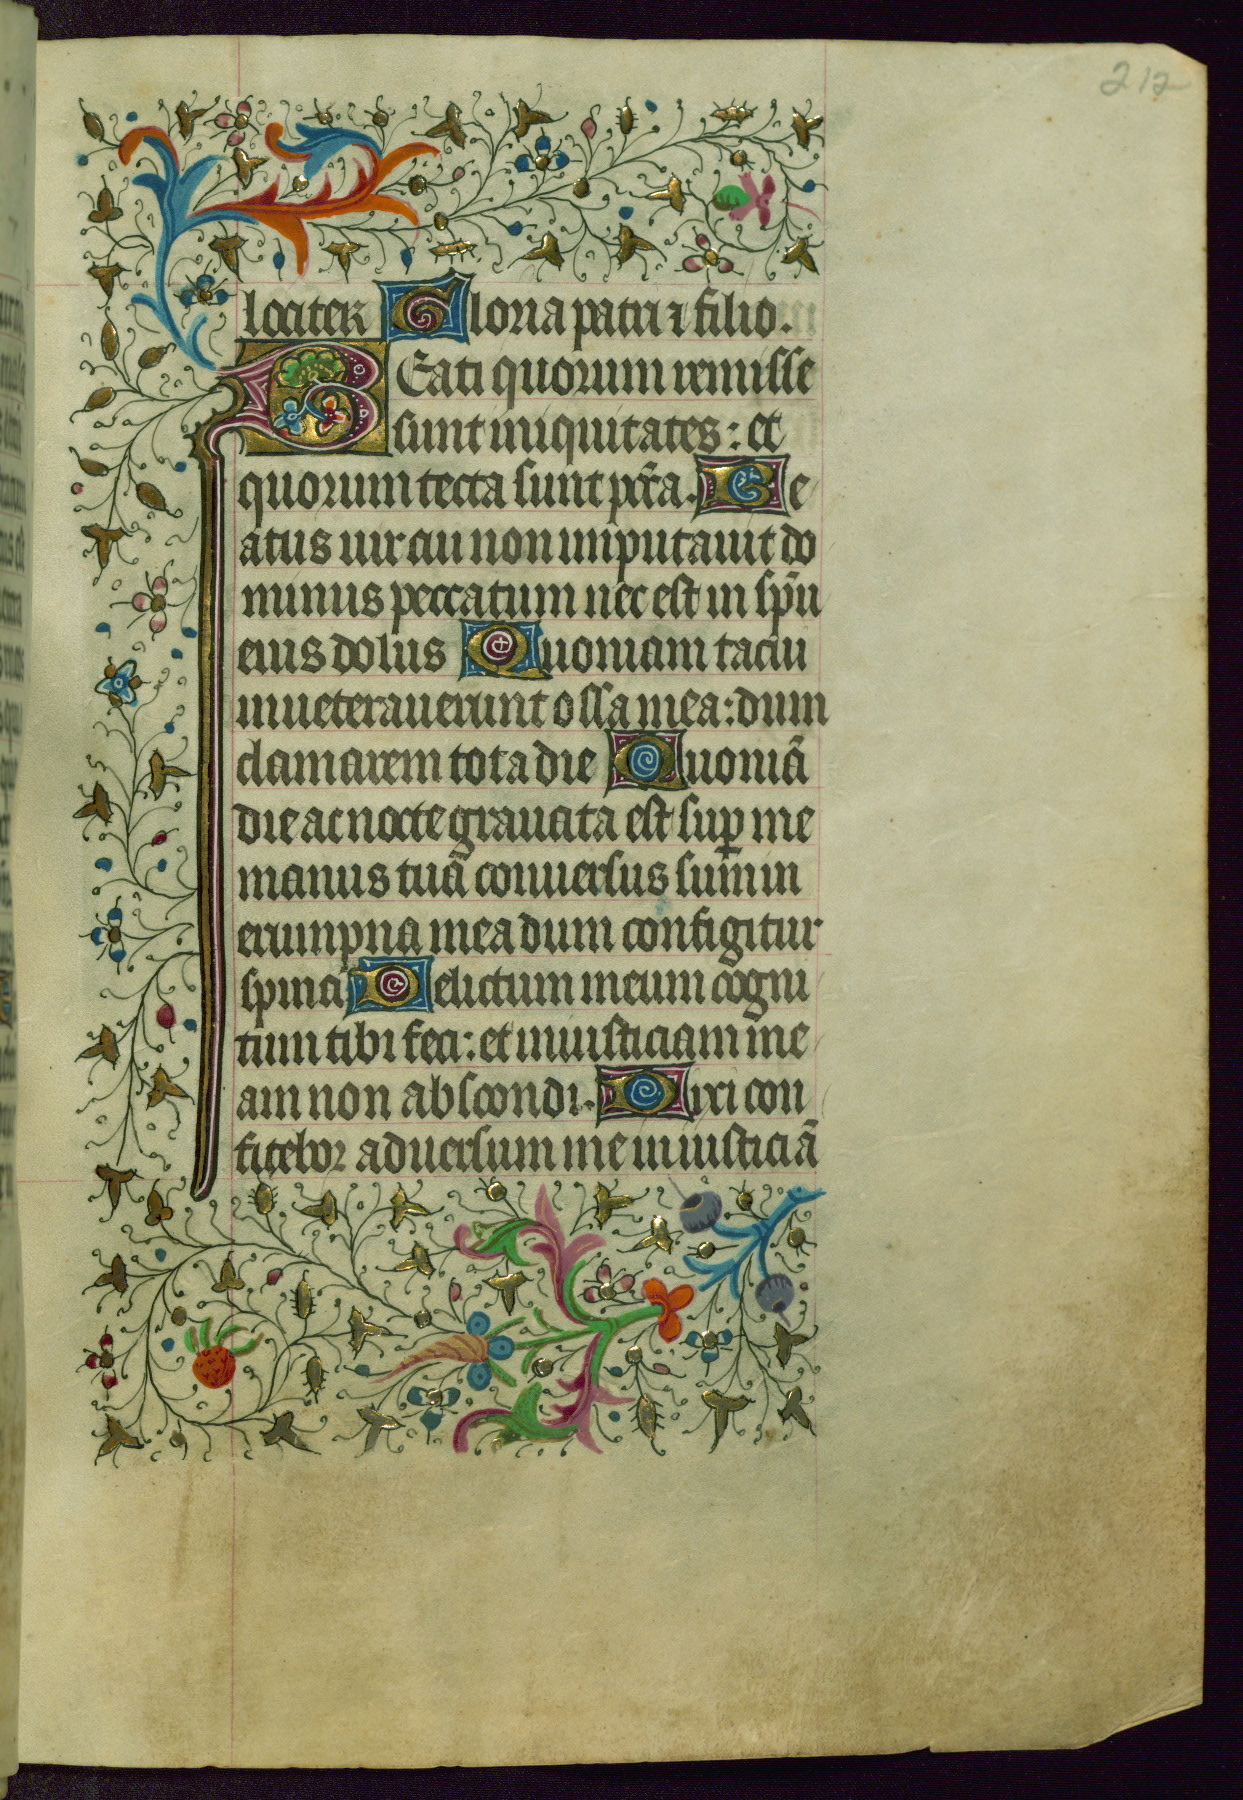 212
lociter Gloria patri ⁊ filio.
BEati quorum remisse
sunt iniquitates: et
quorum tecta sunt pctã. Be
atus uir cui non imputauit do
minus peccatum nec est in spũ
eius dolus Quoniam tacui
inueterauerunt ossa mea: dum
clamarem tota die Quoniã
die ac nocte grauata est suꝑ me
manus tua conuersus sum in
erumpna mea dum configitur
spina Delictum meum cogni
tum tibi feci: et iniusticiam me
am non abscondi. Dixi con
fitebor aduersum me iniusticiã